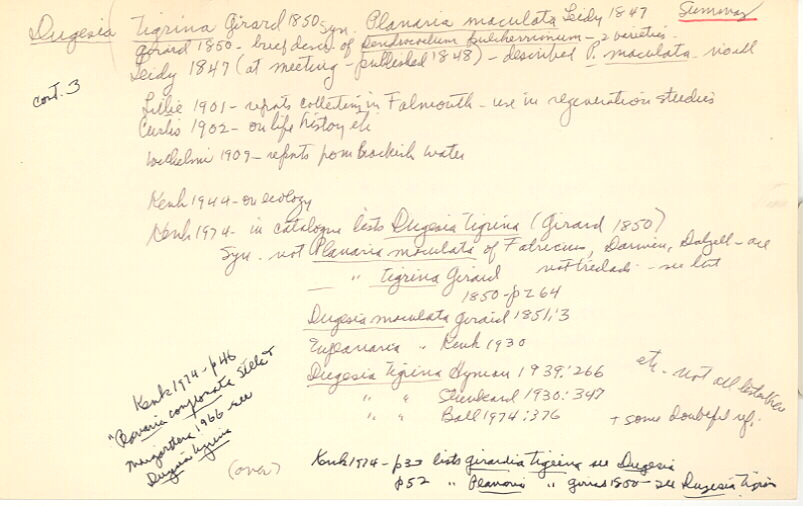 Summary
Dugesia Tigrina Girard 1850 Syn. Planaria maculata Leidy 1847
Girard 1850 - brief descr. of Dendrocoelum pulcherrimum - 2 varieties.
Leidy 1847 (at meeting - published 1848) - described P. maculata -
cont. 3
Lillie 1901 - reports collecting in Falmouth - use in regeneration studies
Curtis 1902 - on life history etc
Wilhelmi 1909 - reports from Brackish water
Kenk 1944 - on ecology
Kenk 1974 - in catalogue lists Dugesia Tigrina (Girard 1850)
Syn. not Planaria maculata of Fabricius, Darwin, Dalyell - all
— " tigrina Girard not triclads - see list
1850 - p264
Dugesia maculata Girard 1851:3
Euplanaria " Kenk 1930
Dugesia tigrina Hyman 1939:266
" " Stunkard 1930:347
" " Ball 1974:376
etc - not all listed here
+ some doubtful ref.
Kenk 1974 - p46
"Planaria Stella +
1966 see
Dugesia tigrina
(over)
Kenk 1974 - p33 lists girardia Tigrina see Dugesia
p52 " Planaria " girard 1850 - see Dugesia Tigrin